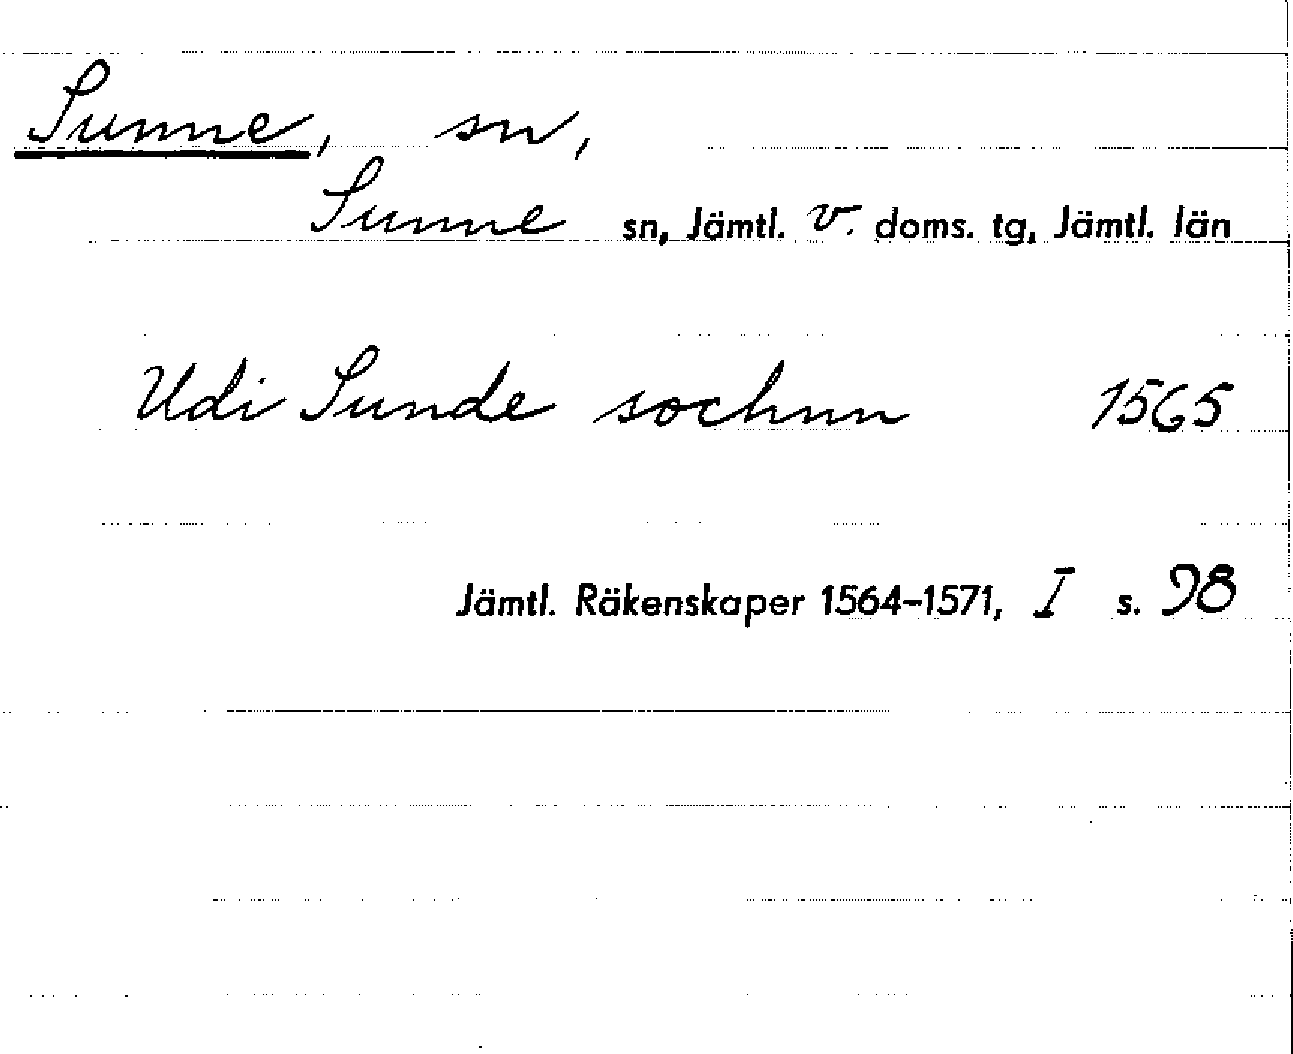 Sunne, sn,
Sunne sn, Jämtl. v. doms. tg, Jämtl. län
Udi Sunde sochnn 1565
Jämtl. Räkenskaper 1564-1571, I s. 98